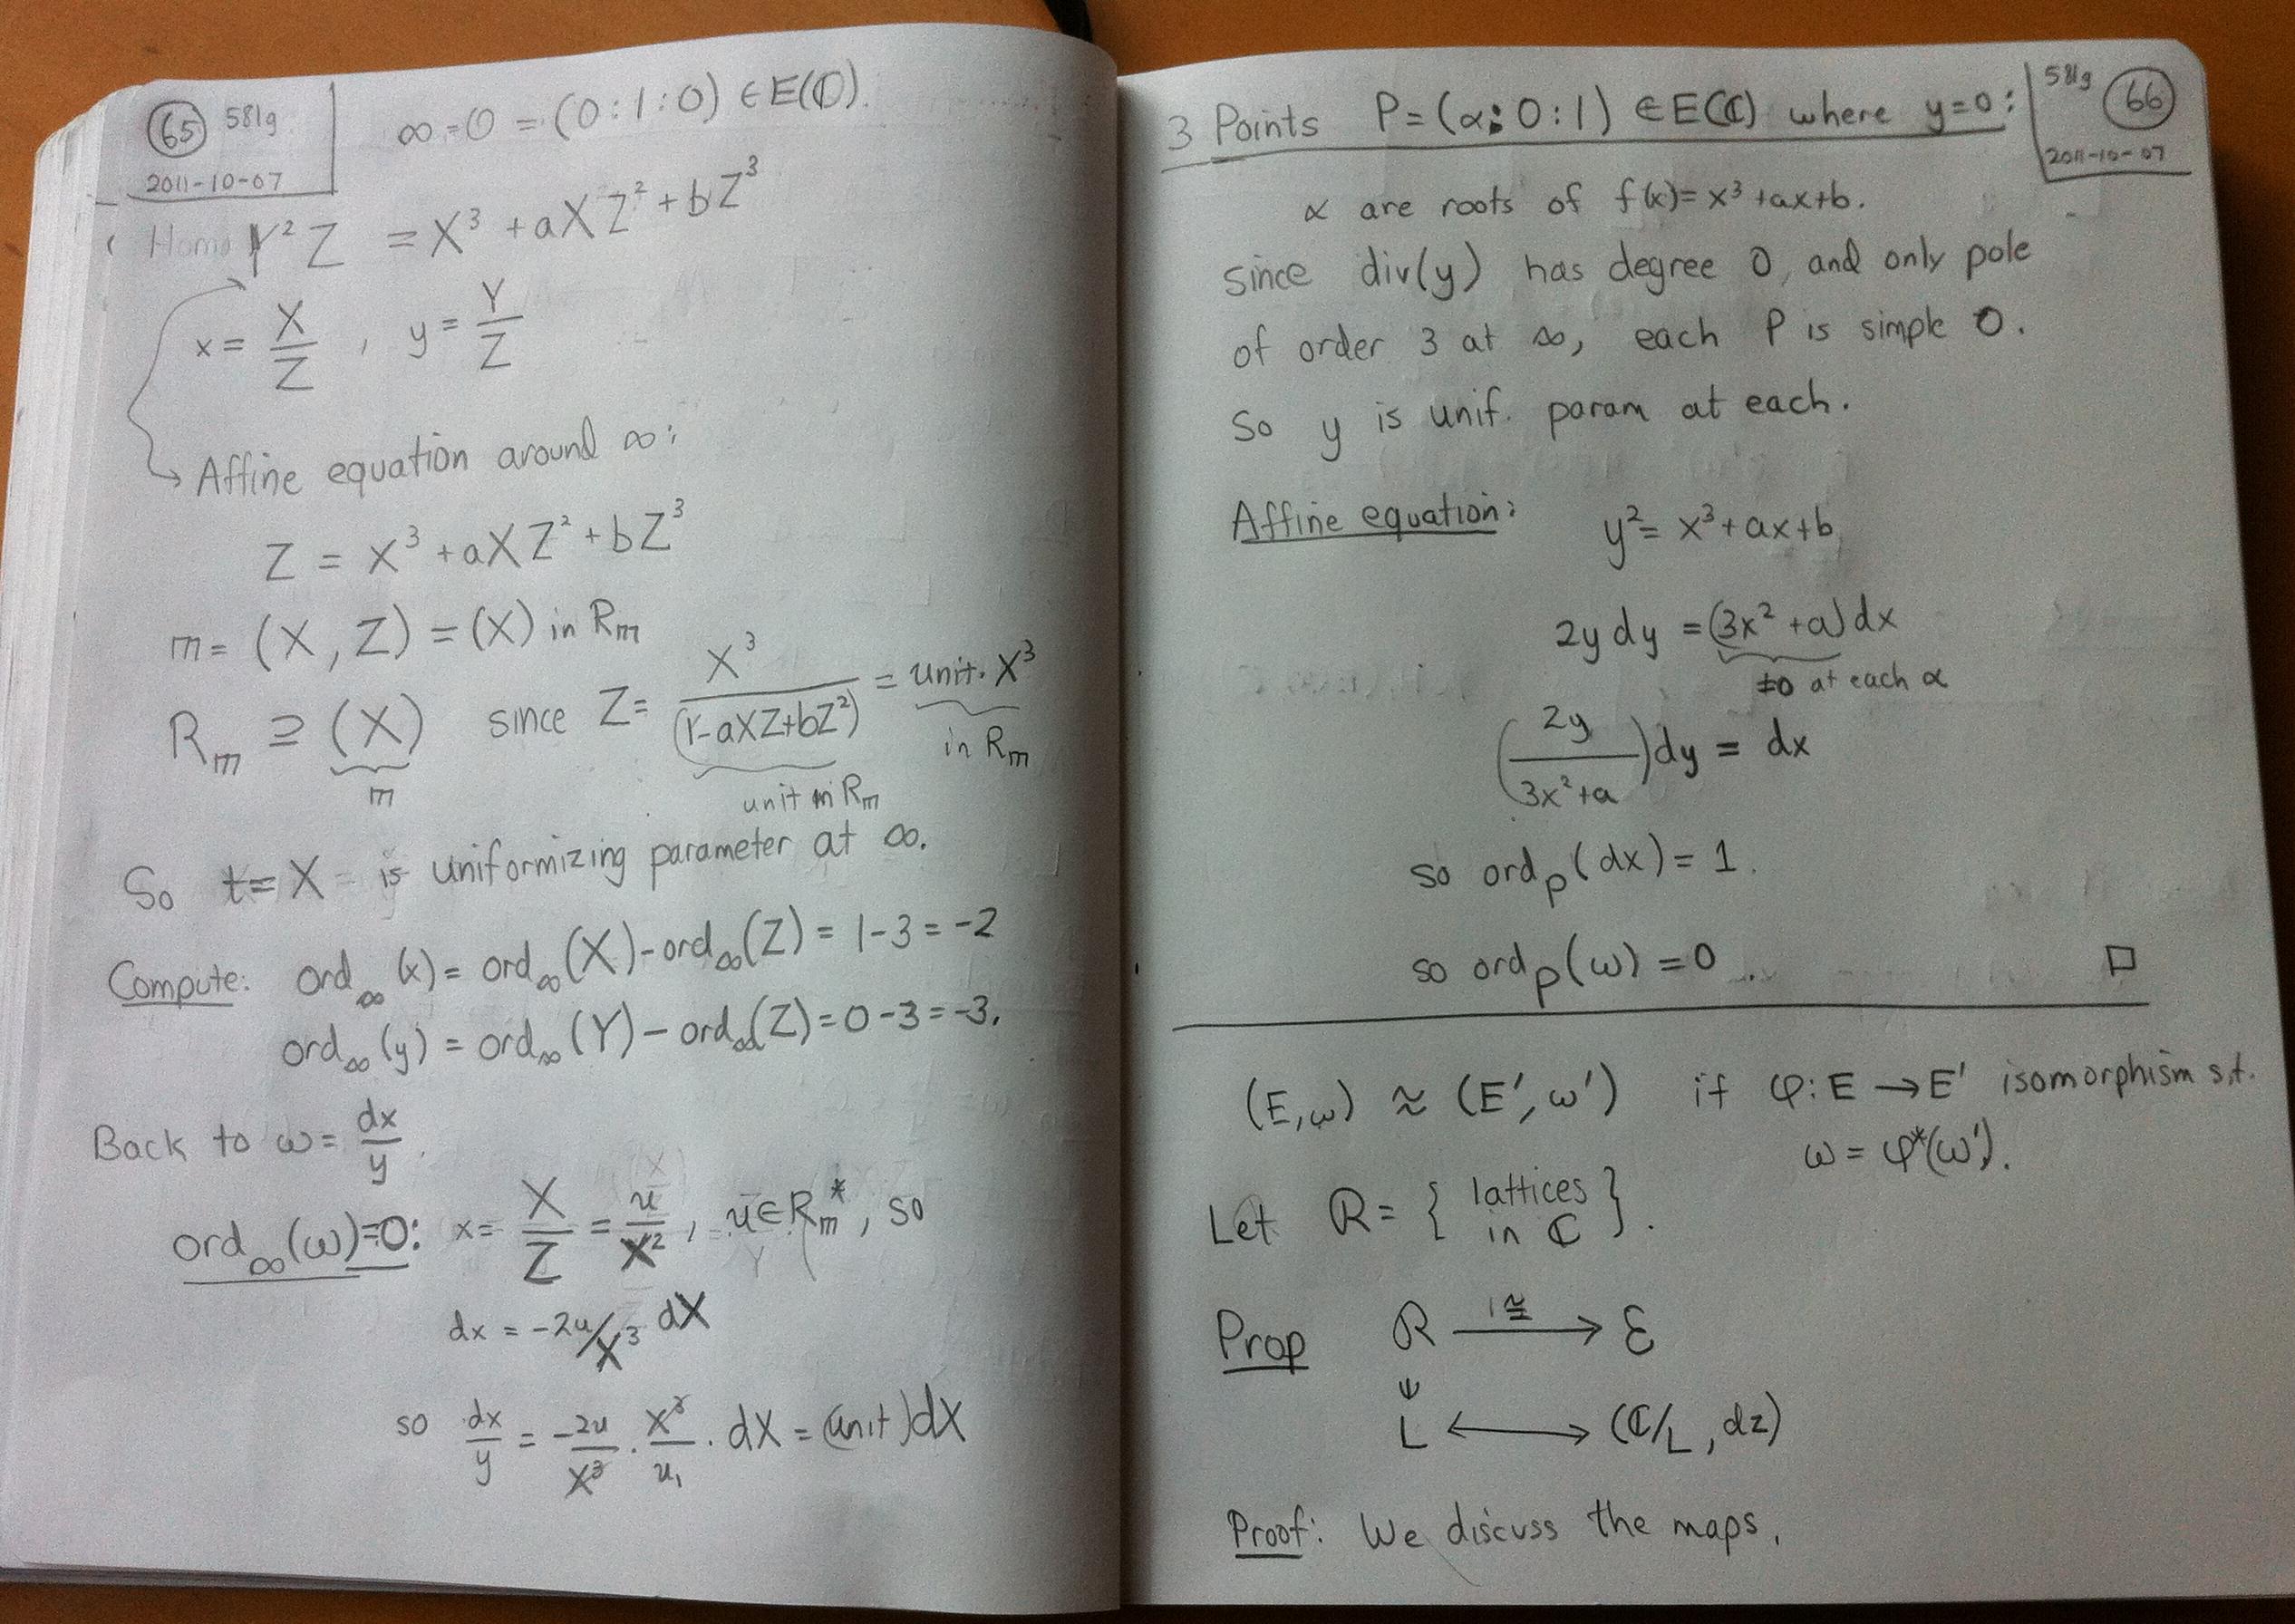 65 581g
2011-10-07
∞ = O = (0:1:0) ∈ E(ℂ).
Y²Z = X³ + aXZ² + bZ³
x = X/Z , y = Y/Z
Affine equation around ∞:
Z = X³ + aXZ² + bZ³
m = (X, Z) = (X) in R_m
R_m ⊇ (X) since Z = X³/(1-aXZ+bZ²) = unit·X³
m unit in R_m in R_m
So t = X is uniformizing parameter at ∞.
Compute: ord_∞(x) = ord_∞(X) - ord_∞(Z) = 1-3 = -2
ord_∞(y) = ord_∞(Y) - ord_∞(Z) = 0-3 = -3.
Back to ω = dx/y.
ord_∞(ω)=0: x = X/Z = u/X², u ∈ R_m*, so
dx = -2u/X³ dX
so dx/y = -2u/X³ · X³/u₁ · dX = (unit)dX
581g 66
2011-10-07
3 Points P = (α:0:1) ∈ E(ℂ) where y=0:
α are roots of f(x) = x³+ax+b.
since div(y) has degree 0, and only pole
of order 3 at ∞, each P is simple 0.
So y is unif. param at each.
Affine equation: y² = x³+ax+b
2y dy = (3x²+a)dx
≠0 at each α
(2y/(3x²+a))dy = dx
so ord_P(dx) = 1.
so ord_P(ω) = 0. □
(E,ω) ≈ (E',ω') if φ: E → E' isomorphism s.t.
ω = φ*(ω').
Let R = { lattices in ℂ }.
Prop R ≅→ ℰ
L ↔ (ℂ/L, dz)
Proof: We discuss the maps.